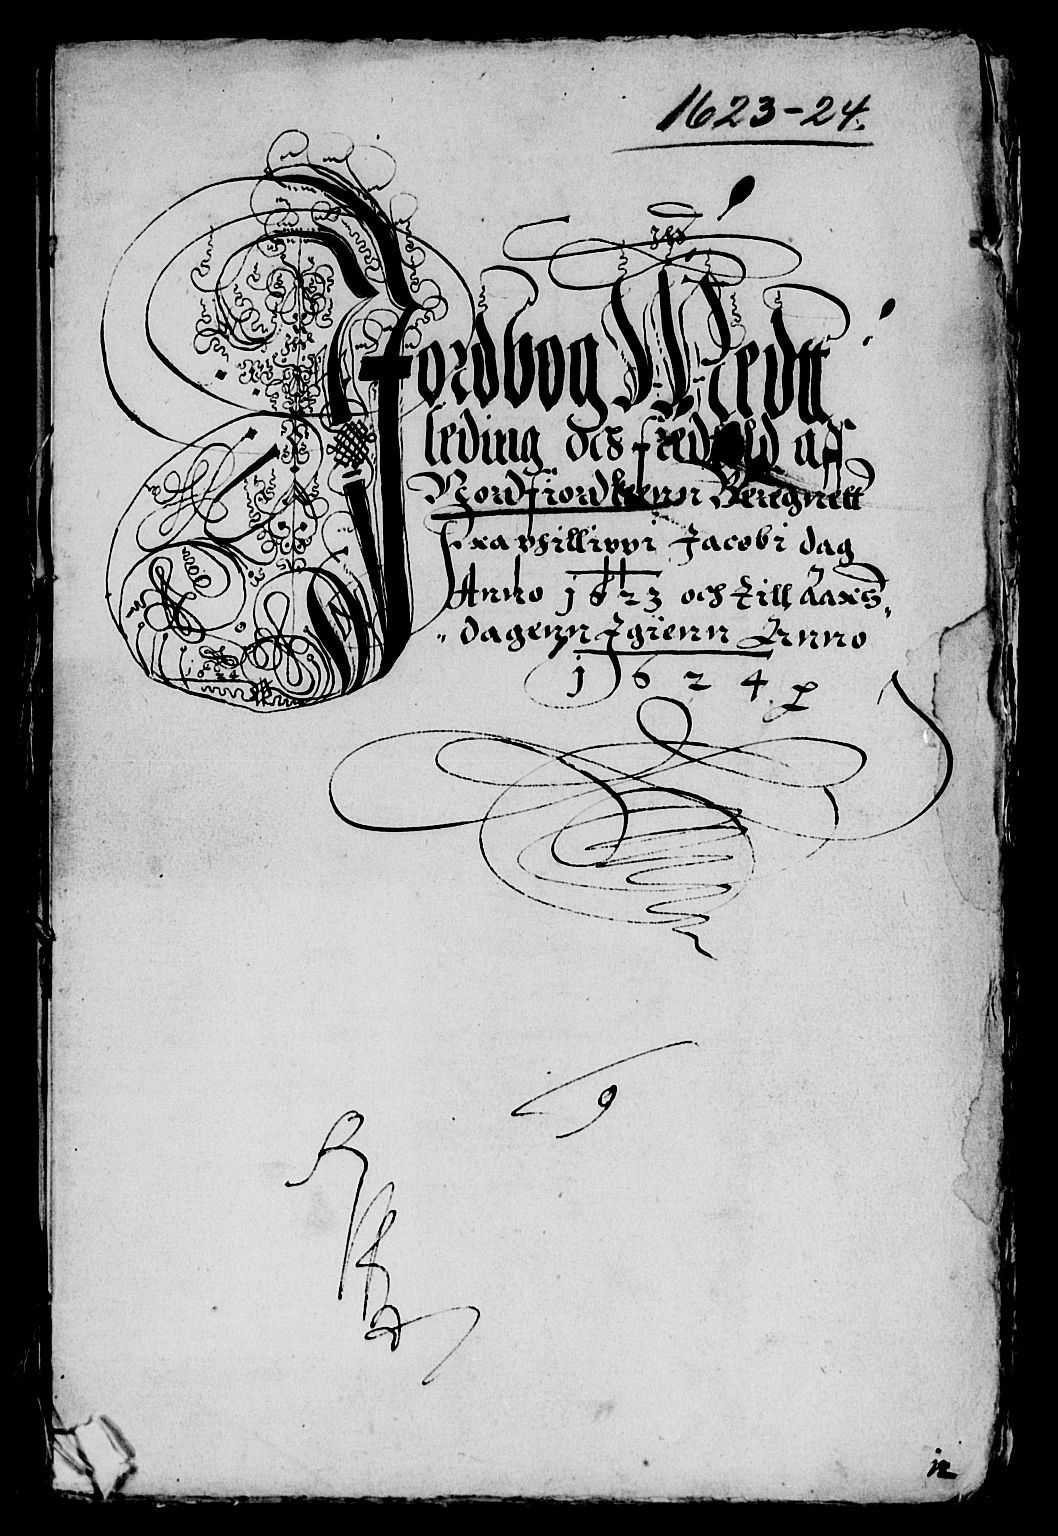 1623-24.
Jordbog Medtt
leding och fredtold aff
Nordfiordlenn Beregnett
fra philippi Jacobi dag
Anno 1623 och till Aars-
dagenn Igienn Anno
1624
1624